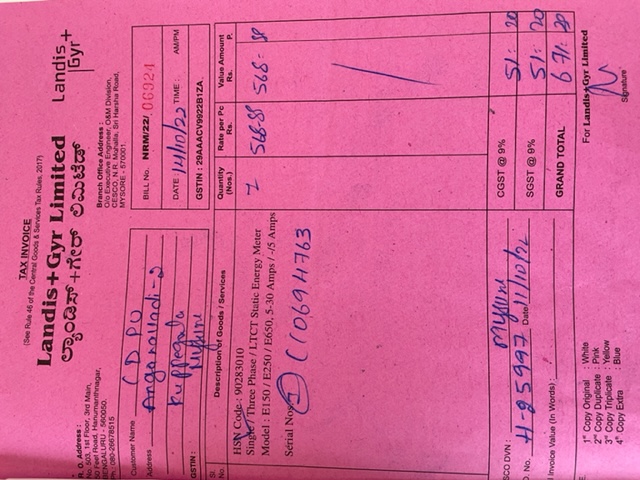 TAX INVOICE
(See Rule 46 of the Central Goods & Services Tax Rules, 2017)
Landis+Gyr Limited
ಲ್ಯಾಂಡಿಸ್+ಗೇರ್ ಲಿಮಿಟೆಡ್
Landis+
Gyr+
R. O. Address :
No. 503, 1st Floor, 3rd Main,
50 Feet Road, Hanumanthnagar,
BENGALURU - 560050.
Ph: 080-26678515
Branch Office Address :
O/o Executive Engineer, O&M Division,
CESCO, N.R. Mohalla, Sri Harsha Road,
MYSORE - 570001.
Customer Name CDPO
Address Anganawadi-2
Kuppegala
Mysure
GSTIN :
BILL No. NRM/22/ 06924
DATE : 14/10/22 TIME : AM/PM
GSTIN : 29AAACV9922B1ZA
Sl. Description of Goods / Services Quantity (Nos.) Rate per Pc Rs. Value Amount Rs. P.
HSN Code - 90283010
Single / Three Phase / LTCT Static Energy Meter
Model : E150 / E250 / E650, 5-30 Amps / -/5 Amps
568-88 568- 88
Serial Nos. C10694763
SCO DVN : Mysure
D. No. H-25997 Date 11/10/22
Invoice Value (In Words) :
CGST @ 9% 51: 20
SGST @ 9% 51: 20
GRAND TOTAL 671:
E.
1st Copy Original : White
2nd Copy Duplicate : Pink
3rd Copy Triplicate : Yellow
4th Copy Extra : Blue
For Landis+Gyr Limited
Signature